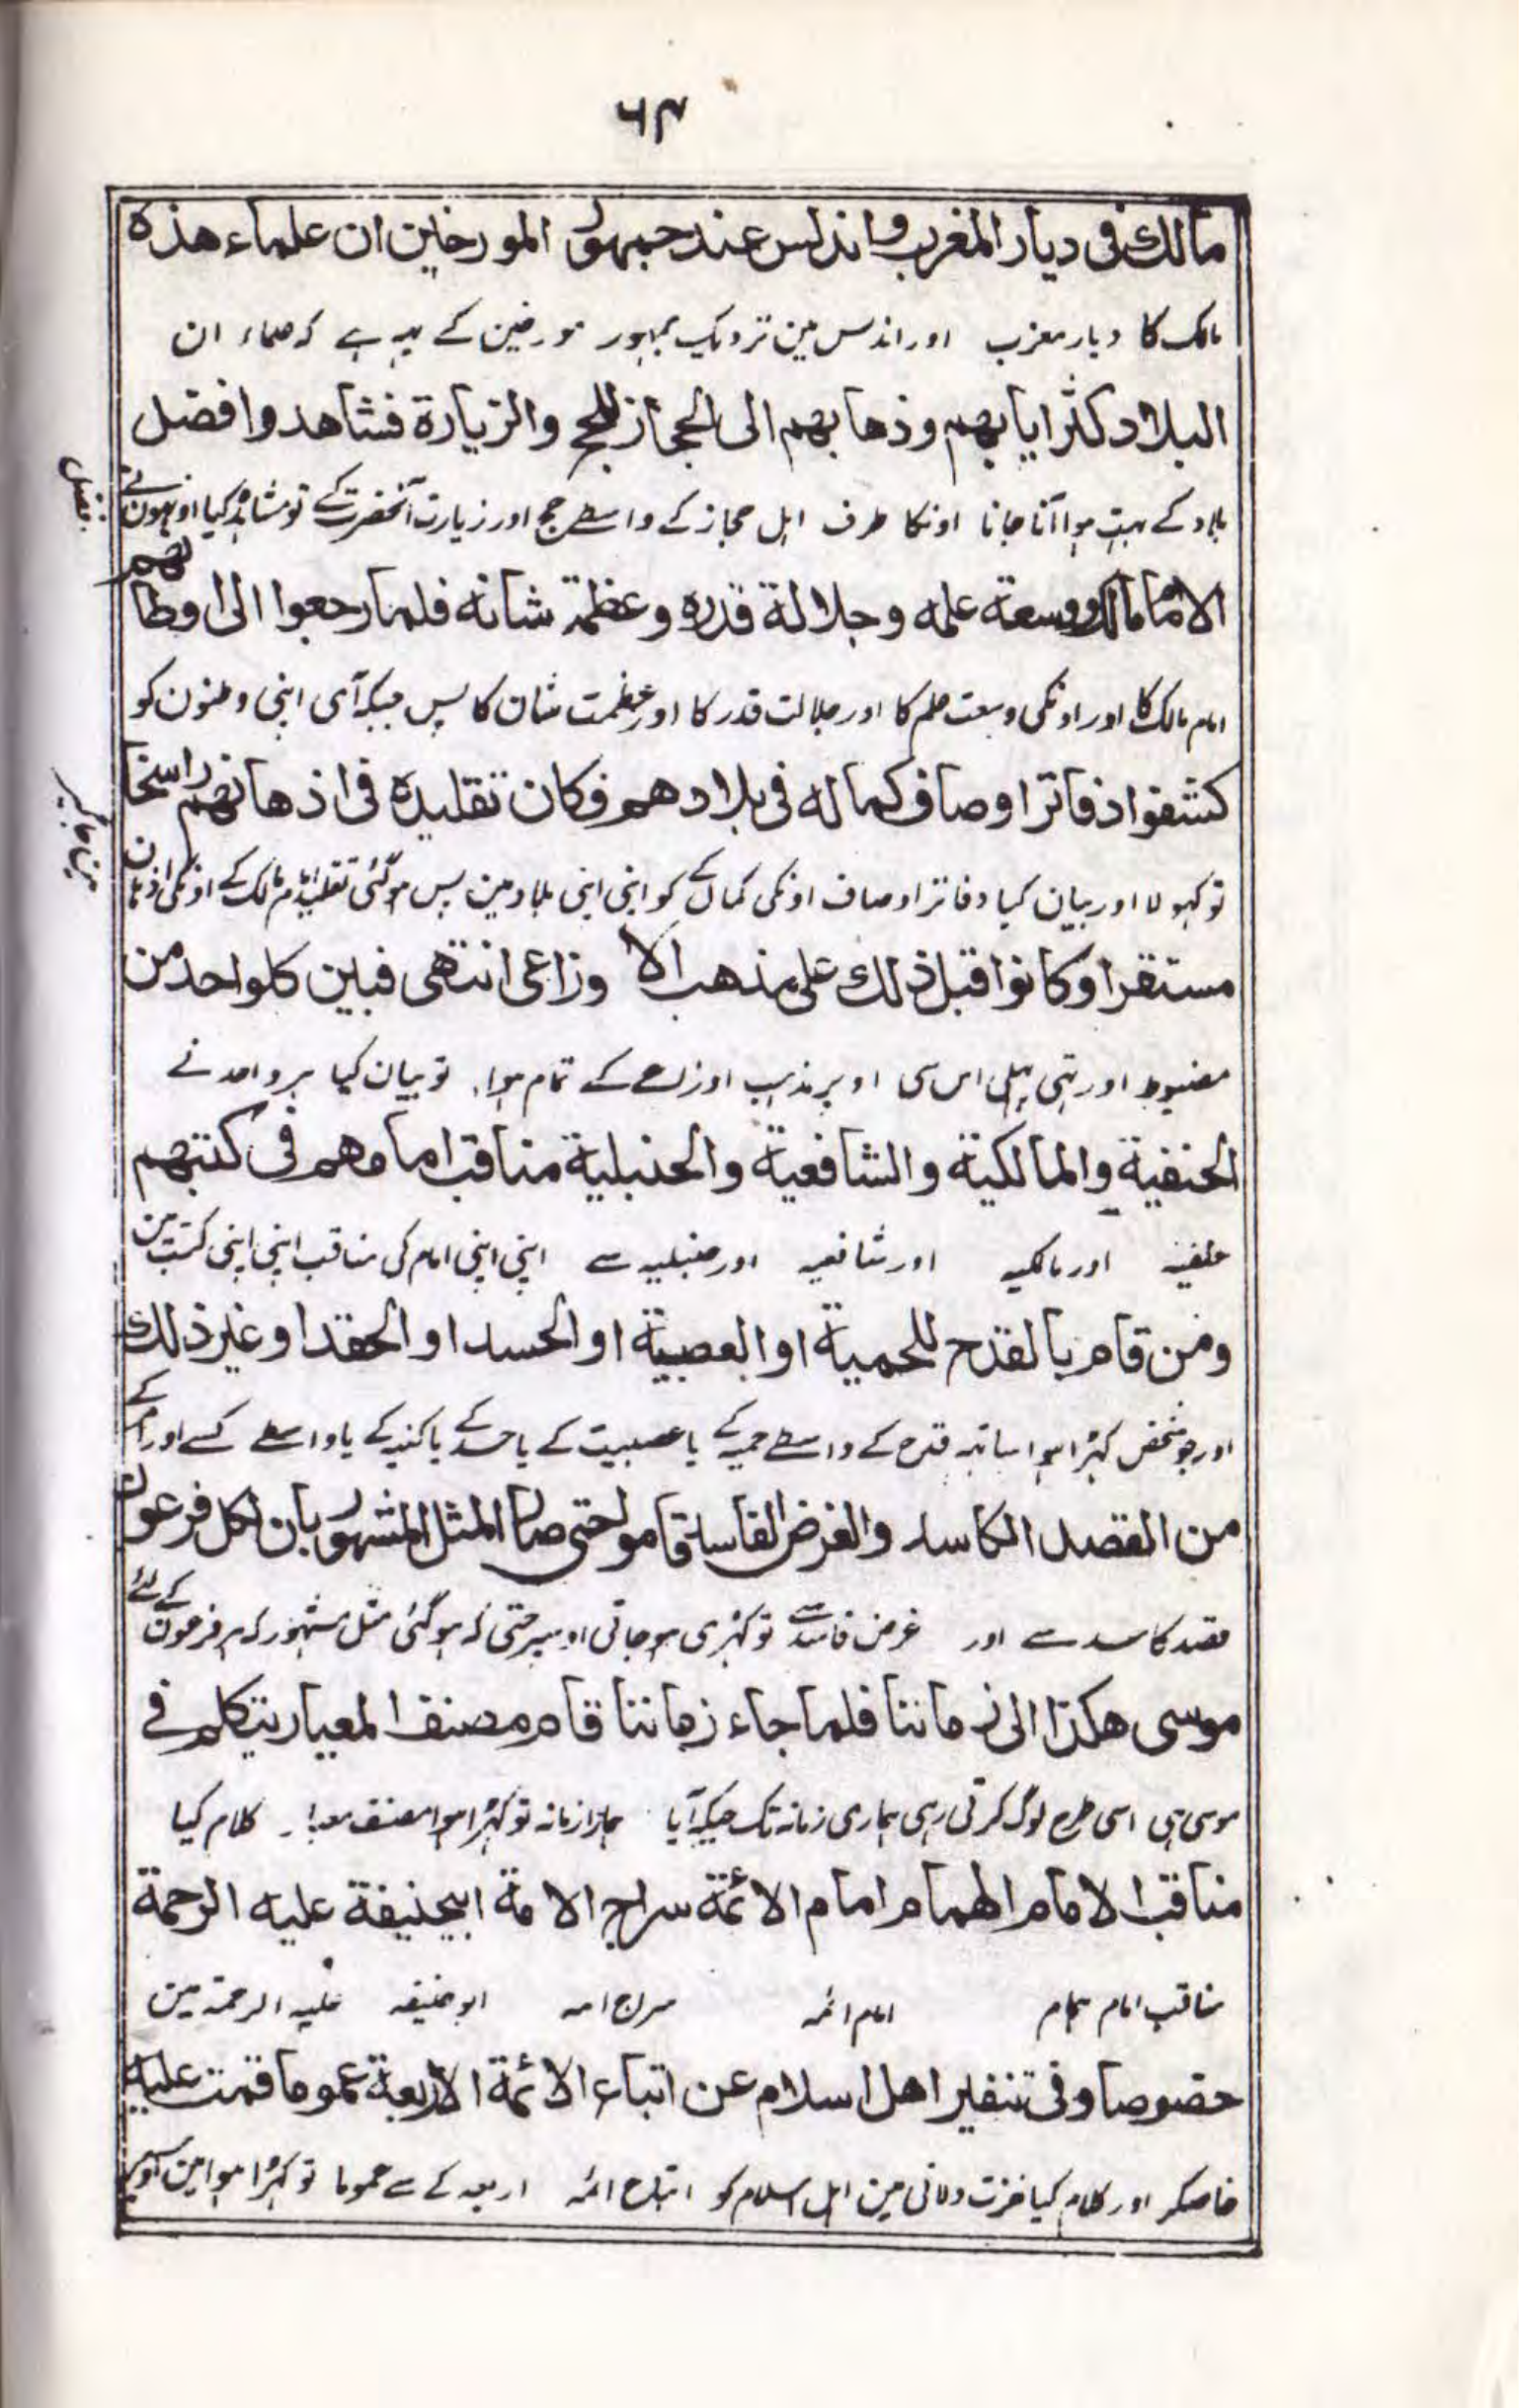 ٦٤
مالك فى ديار المغرب واندلس عند جمهور المورخين ان علماء هذه
مالک کا دیار مغرب اور اندلس مین نزدیک جمہور مورخین کے یہہ ہے کہ علماء ان
البلاد كثر ايابهم وذهابهم الى الحجاز للحج والزيارة فشاهدوا فضل
بلاد کے بہت ہوا آنا جانا اونکا طرف اہل حجاز کے واسطے حج اور زیارت آنحضرت کے تو مشاہدہ کیا اونہون نے فضل
الامام مالك ووسعة علمه وجلالة قدره وعظمة شانه فلما رجعوا الى اوطانهم
امام مالک کا اور اونکی وسعت علم کا اور جلالت قدر کا اور عظمت شان کا پس جبکہ آی اپنی وطنون کو
كشفوا دفاتر اوصاف كماله فى بلادهم فكان تقليده فى اذهانهم راسخا
تو کہولا اور بیان کیا دفاتر اوصاف اونکی کمال کے کو اپنی اپنی بلاد مین پس ہوگئی تقلید امام مالک کے اونکی اذہان مین جاگیر
مستقرا وكانوا قبل ذلك على مذهب الاوزاعى انتهى فبين كلواحد من
مضبوط اور تہی پہلی اس سی اوپر مذہب اوزاعے کے تمام ہوا۔ تو بیان کیا ہر واحد نے
الحنفية والمالكية والشافعية والحنبلية مناقب امامهم فى كتبهم
حنفیہ اور مالکیہ اور شافعیہ اور حنبلیہ سے اپنی اپنی امام کی مناقب اپنی اپنی کتب مین
ومن قام بالقدح للحمية او العصبية او الحسد او الحقد او غير ذلك
اور جو شخص کہڑا ہوا ساتہہ قدح کے واسطے حمیہ کے یا عصبیت کے یا حسد کے یا کینہ کے یا واسطے کسے اور امر کے
من القصد الكاسد والغرض الفاسد قاموا حتى صار المثل المشهور بان لكل فرعون
قصد کاسد سے اور غرض فاسد سے تو کہڑی ہوجاتی اوسپر حتی کہ ہوگئی مثل مشہور کہ ہر فرعون کے لئے
موسى هكذا الى زماننا فلما جاء زماننا قام مصنف المعيار يتكلم فے
موسی ہی اسی طرح لوگ کرتی رہی ہماری زمانہ تک جبکہ آیا ہمارا زمانہ تو کہڑا ہوا مصنف معیار۔ کلام کیا
مناقب الامام الهمام امام الائمة سراج الامة ابيحنيفة عليه الرحمة
مناقب امام ہمام امام ائمہ سراج امہ ابوحنیفہ علیہ الرحمۃ مین
خصوصا وفى تنفير اهل اسلام عن اتباع الائمة الاربعة عموما قمت عليه
خاصکر اور کلام کیا نفرت دلانی مین اہل اسلام کو اتباع ائمہ اربعہ کے سے عموما تو کہڑا ہوا مین اوسپر